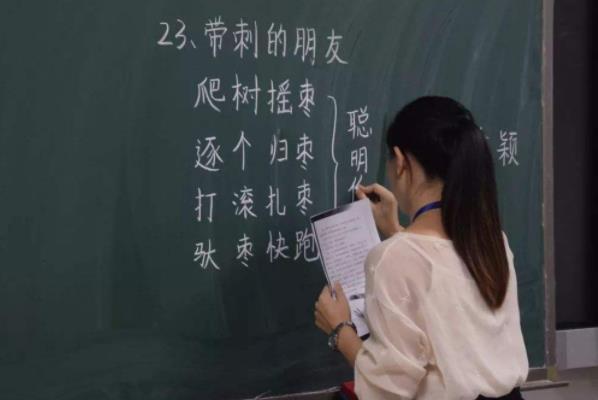 23、带刺的朋友
爬树摇枣
逐个归枣
打滚扎枣
驮枣快跑
聪明
颖